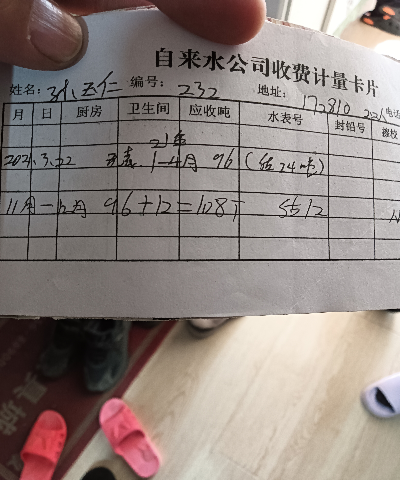 自来水公司收费计量卡片
姓名: 孙玉仁 编号: 232 地址: 172810 2-21 电话
月 日 厨房 卫生间 应收吨 水表号 封铅号 灌校
21年
2021.3.22 1-4月 96 (结24吨)
11月-12月 96+12=108T 5512